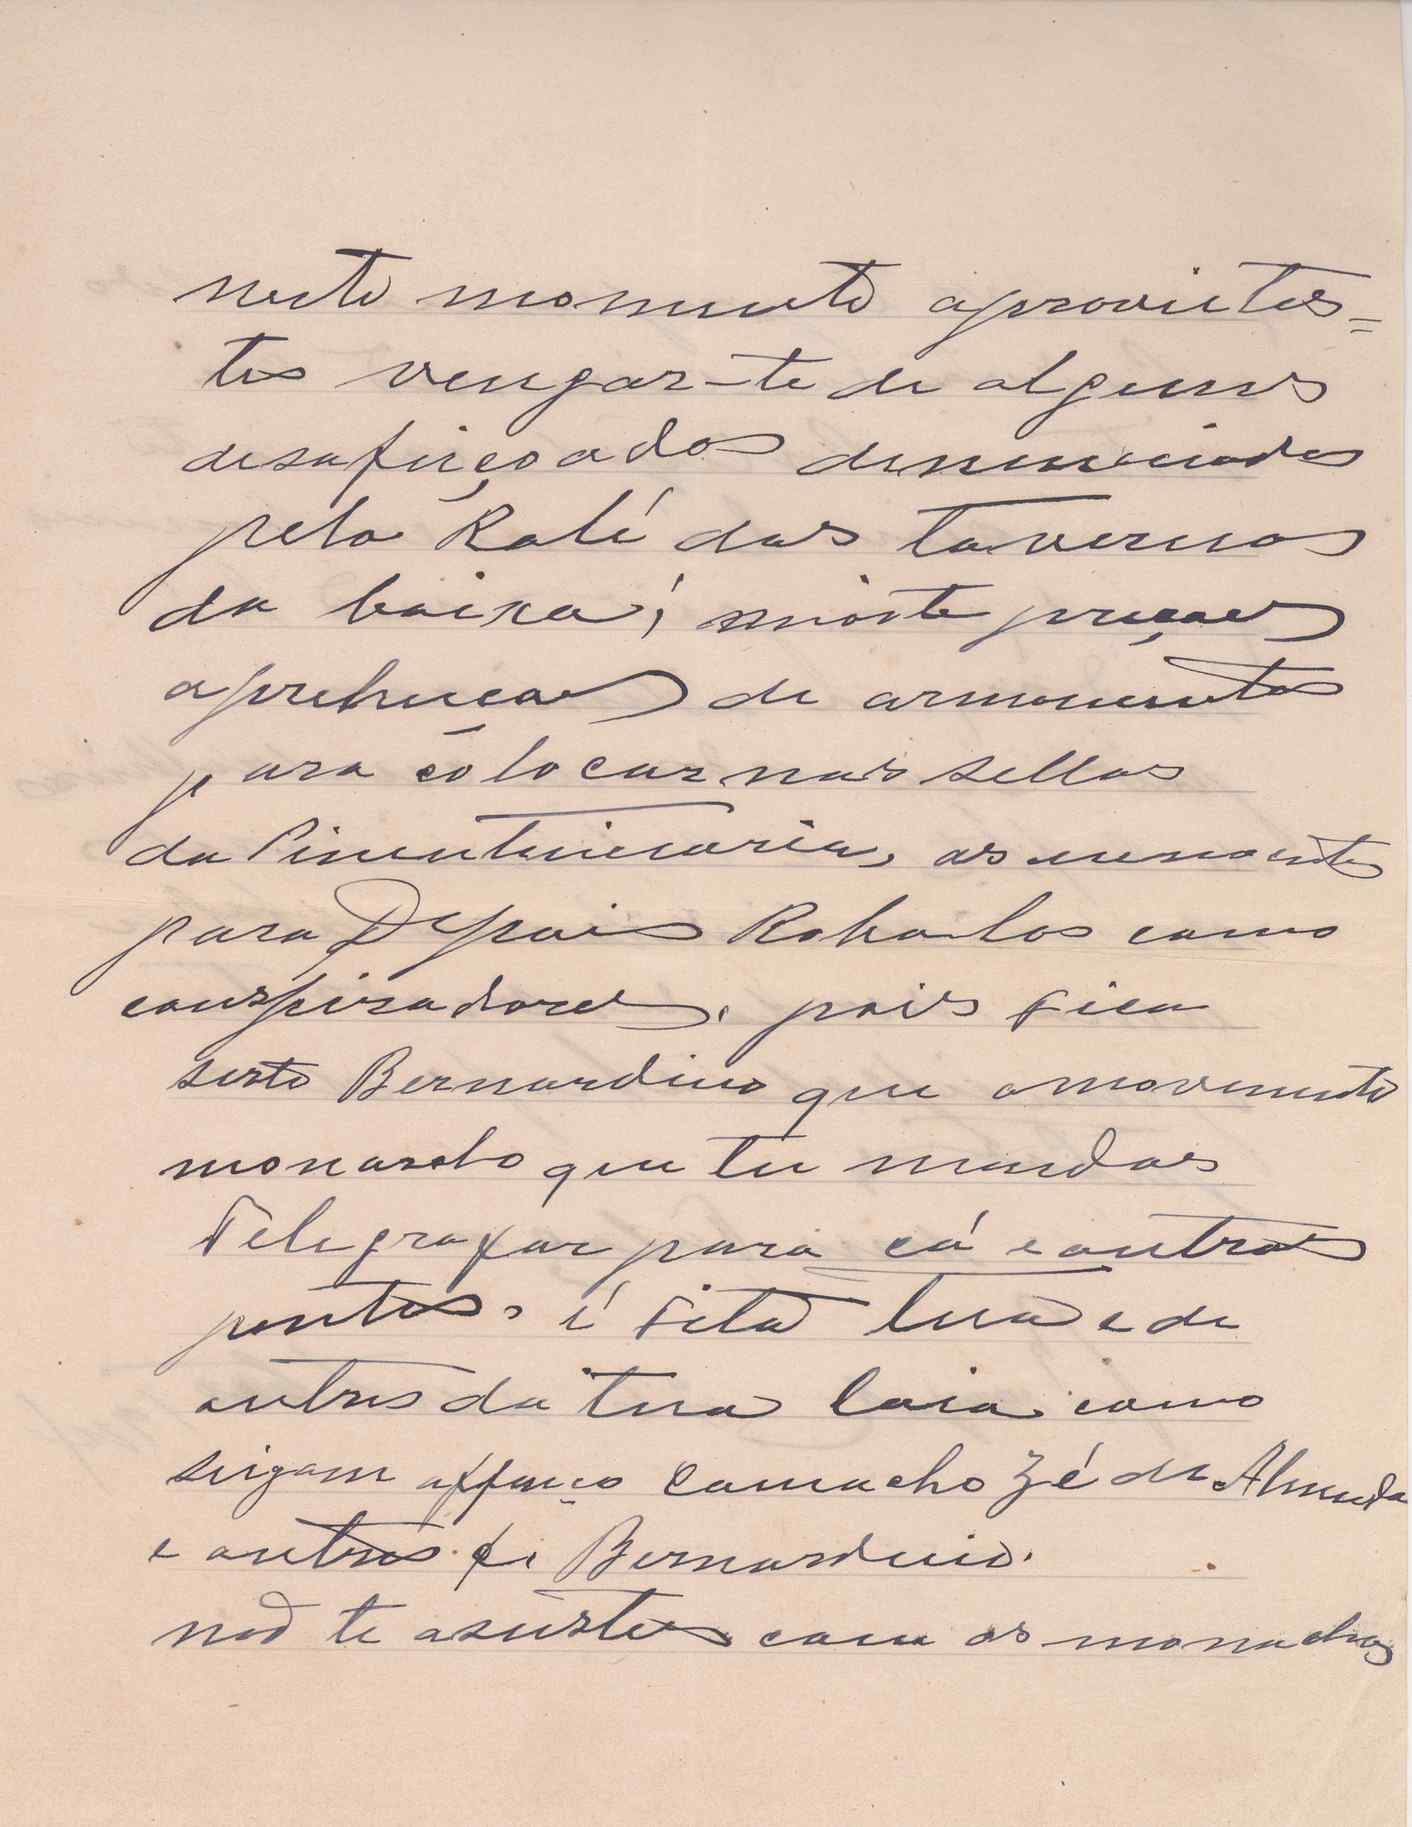 neste momento aproveitas=
tes vengar-te de alguns
desafeiçoados denunciados
pela Ralé das tavernas
da baixa; neste
aprehenção de armamentos
para colocar nas sellas
da Pinentenciaria, as
para Depois Roba-los como
conspiradores. pois fica
serto Bernardino que o movemento
monarcho que tu mandas
Telegrafar para cá e outros
pontos, é fita tua e de
outros da tua laia. como
sigam affonço Camacho Zé de Almeida
e outros. Bernardino.
não te asustes com os monachos